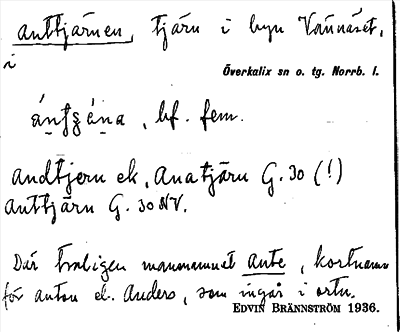 anttjärnen, tjärn i byn Vännäset,
i
Överkalix sn o. tg. Norrb. l.
, bf. fem.
andtjern ek, Anatjärn G. 30 (!)
anttjärn G. 30 NV.
Där troligen mansnamnet ante, kortnamn
för anton el. Anders, som ingår i ortn.
EDVIN BRÄNNSTRÖM 1936.